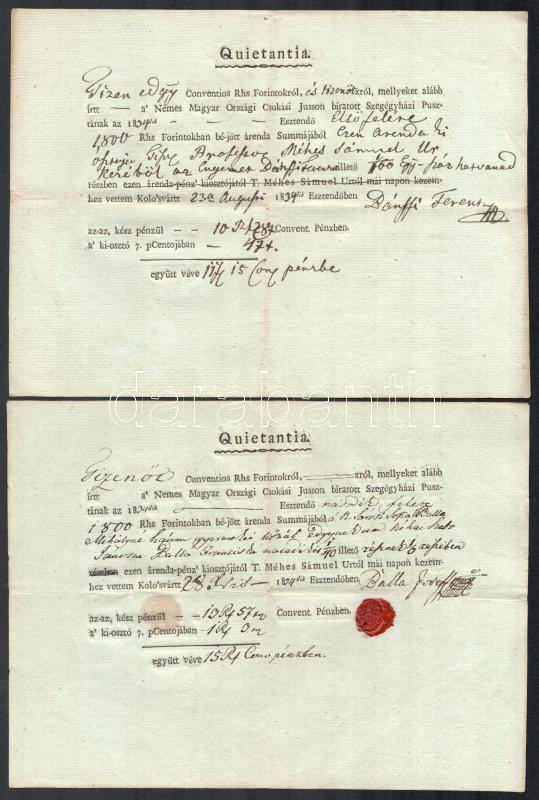 Quietantia.
Tizen edgy Conventios Rhs Forintokról, és tizenöt xról, mellyeket alább
írtt — a' Nemes Magyar Országi Csokási Jusson bíratott Szegégyházi Pusz-
tának az 1834dik — — — Esztendő Első felére
1800 Rhs Forintokban bé-jött árenda Summájából Ezen arenda ki
Professor Méhes Sámuel Ur
kezéből az Engemet illető
részben ezen árenda-pénz' kiosztójától T. Méhes Sámuel Urtól mái napon kezem-
hez vettem Kolo'svártt 23a Augusti 1834dik Esztendőben Bánffi Ferentz
az-az, kész pénzül — — 10 Rf 28x Convent. Pénzben.
a' ki-osztó 7. pCentojában — 47x.
együtt véve 11 f 15 Con pénzbe
darabanth
Quietantia.
Tizenöt Conventios Rhs Forintokról, — xról, mellyeket alább
írtt — a' Nemes Magyar Országi Csokási Jusson bíratott Szegégyházi Pusz-
tának az 1824dik — Esztendő második felére
1800 Rhs Forintokban bé-jött árenda Summájából a Balla
Mihályné három gyermekei közül Edgyik néhai
Balla illető részében
részben ezen árenda-pénz' kiosztójától T. Méhes Sámuel Urtól mái napon kezem-
hez vettem Kolo'svártt 28 Xbris — 1824dik Esztendőben Balla Josef
az-az, kész pénzül — — 13 Rf 57 x Convent Pénzben.
a' ki-osztó 7. pCentojában — 1 Rf 3 x
együtt véve 15 Rf Conv pénzben.